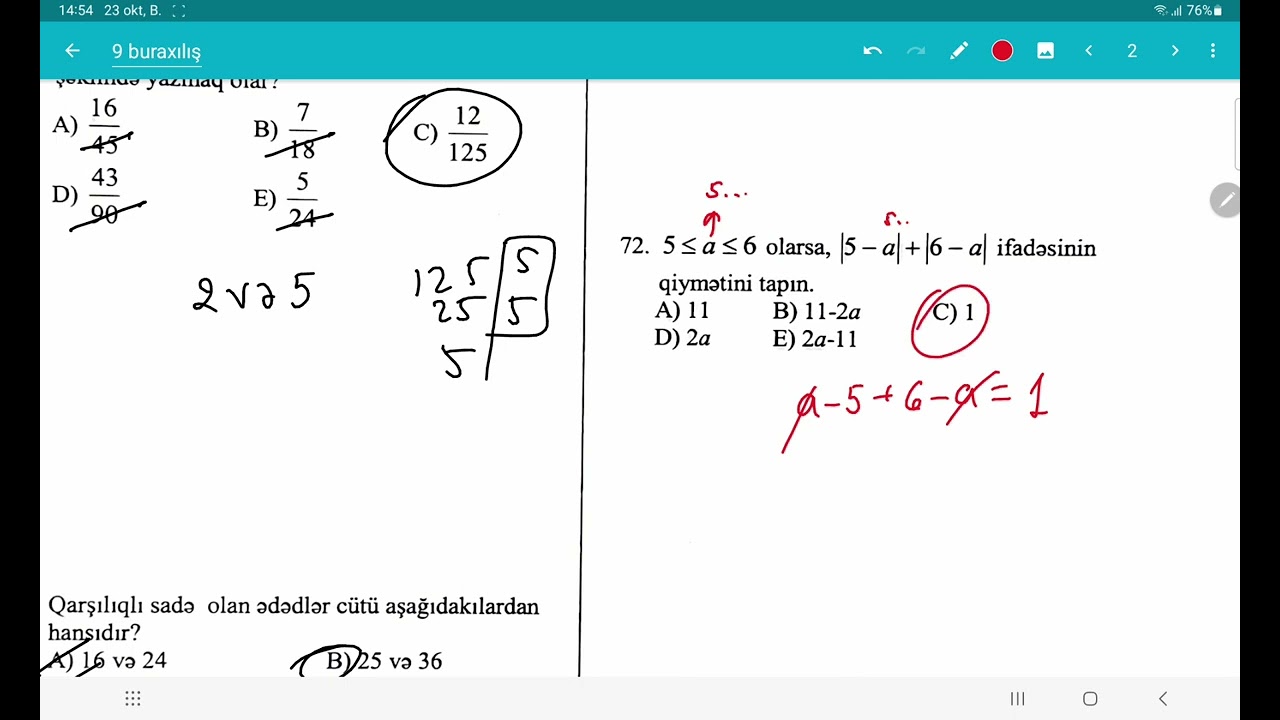 14:54 23 okt, B. 76%
9 buraxılış 2
şəklində yazmaq olar?
A) 16/45 B) 7/18 C) 12/125
D) 43/90 E) 5/24
2 və 5
125 5
25 5
5
5...
5..
72. 5 ≤ a ≤ 6 olarsa, |5 − a| + |6 − a| ifadəsinin
qiymətini tapın.
A) 11 B) 11-2a C) 1
D) 2a E) 2a-11
a − 5 + 6 − a = 1
Qarşılıqlı sadə olan ədədlər cütü aşağıdakılardan
hansıdır?
A) 16 və 24 B) 25 və 36